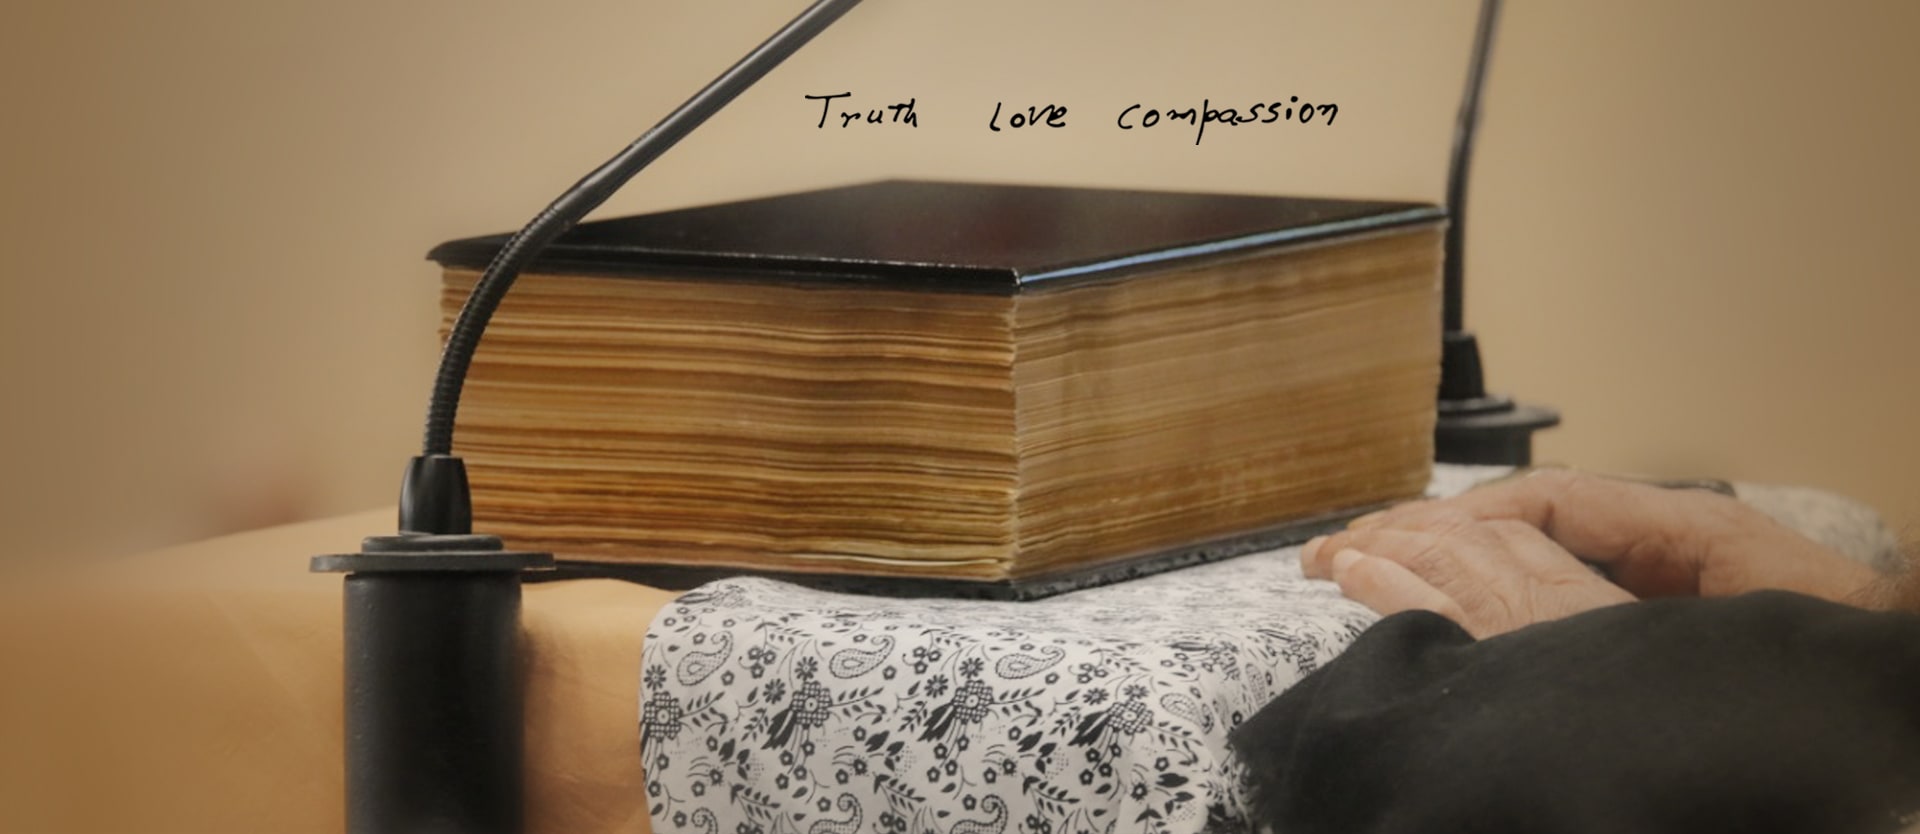 Truth love compassion